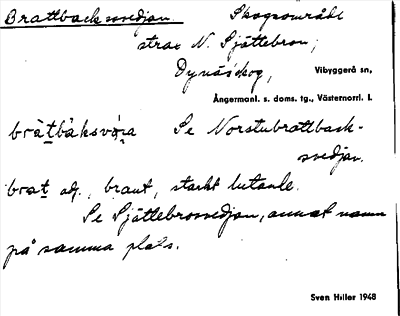 Brattbacksvedjan. Skogsområde
strax N. Sjättebron,
Dynäs skog, Vibyggerå sn,
Ångermanl. s. doms. tg., Västernorrl. l.
Se Norstubrattback-
svedjan.
brat adj., brant, starkt lutande.
Se Sjättebrosvedjan, annat namn
på samma plats.
Sven Hiller 1948